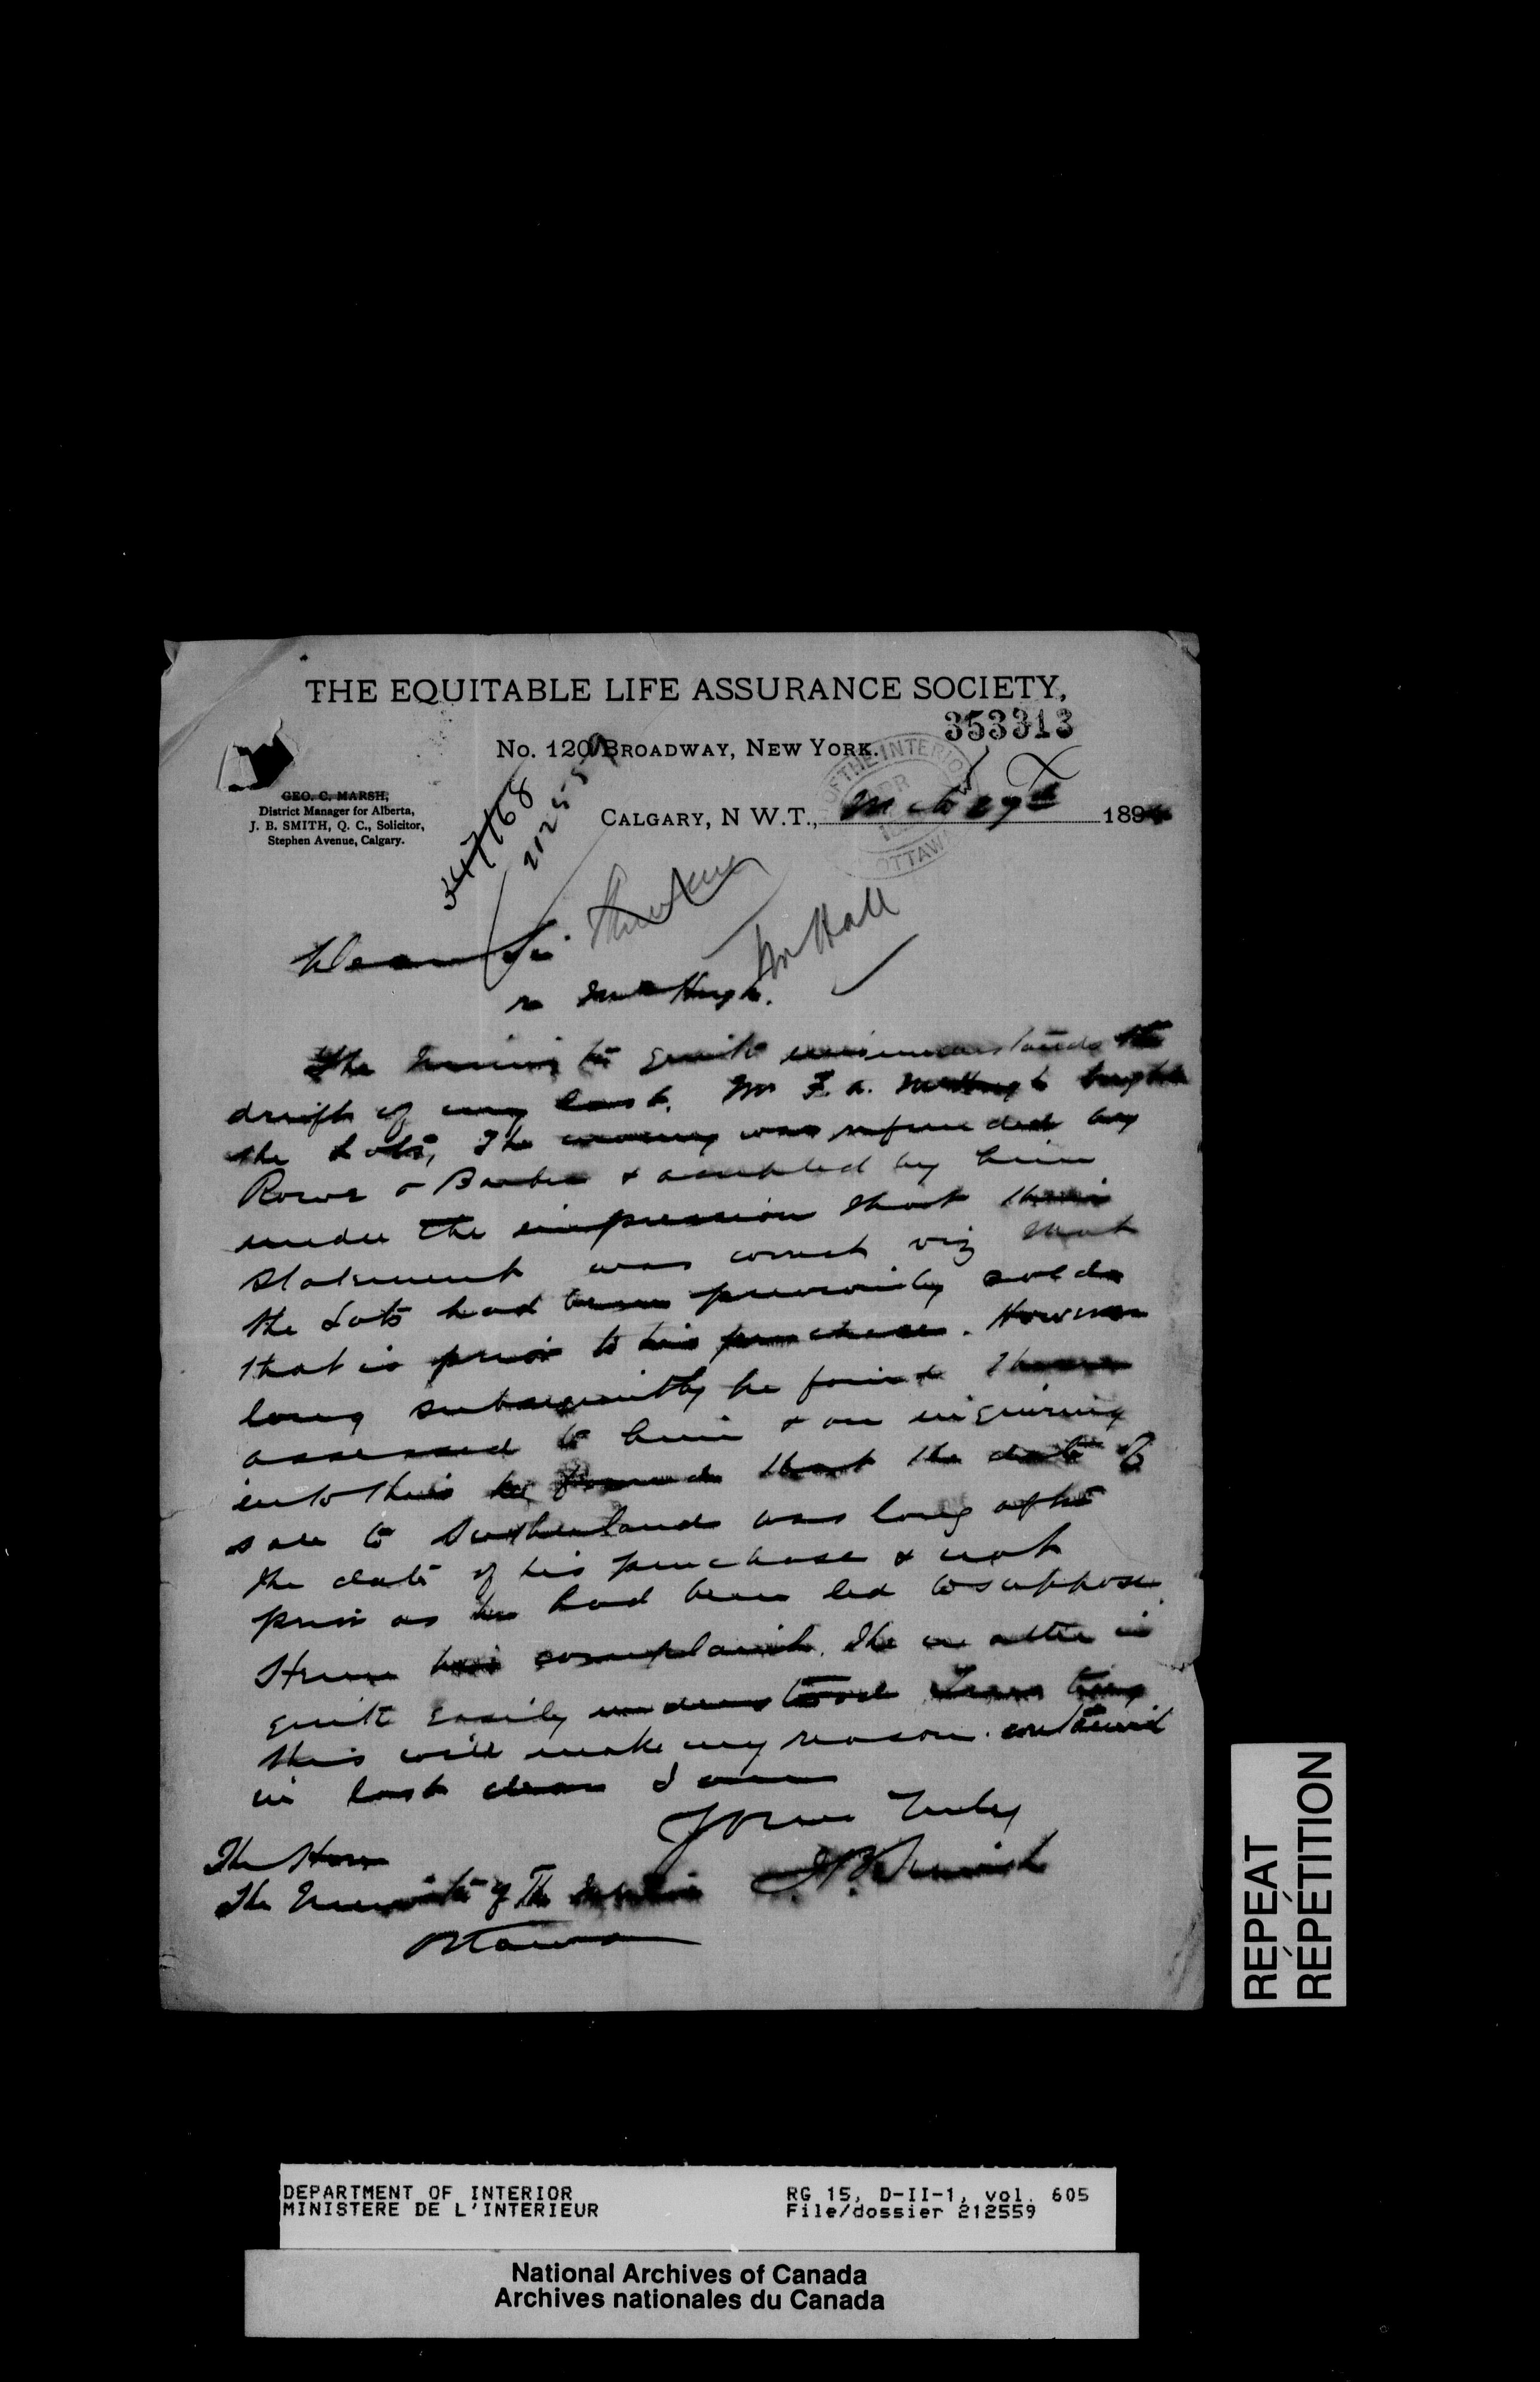 THE EQUITABLE LIFE ASSURANCE SOCIETY,
353313
No. 120 BROADWAY, NEW YORK.
GEO. C. MARSH,
District Manager for Alberta,
J. B. SMITH, Q. C., Solicitor,
Stephen Avenue, Calgary.
CALGARY, N W.T., Mch 27th 189
OF THE INTERIOR
OTTAWA
347168
212559
Dear Sir
Mr Hall
re McHugh.
The Minister quite misunderstands the
drift of my last. Mr F. A. McHugh bought
the Lots, The money was refunded by
Rowe & accepted by him
under the impression that their
statement was correct viz that
the Lots had been previously sold
that is prior to his purchase. However
long subsequently he found them
assessed to him & on inquiring
into this he found that the date of
sale to Sutherland was long after
the date of his purchase & not
prior as he had been led to suppose.
Hence his complaint. The matter is
quite easily understood Trusting
this will make my reason contained
in last clear I am
Yours Truly
J B Smith
The Hon
The Minister of The Interior
Ottawa
REPEAT
RÉPÉTITION
DEPARTMENT OF INTERIOR
MINISTERE DE L'INTERIEUR
RG 15, D-II-1, vol. 605
File/dossier 212559
National Archives of Canada
Archives nationales du Canada